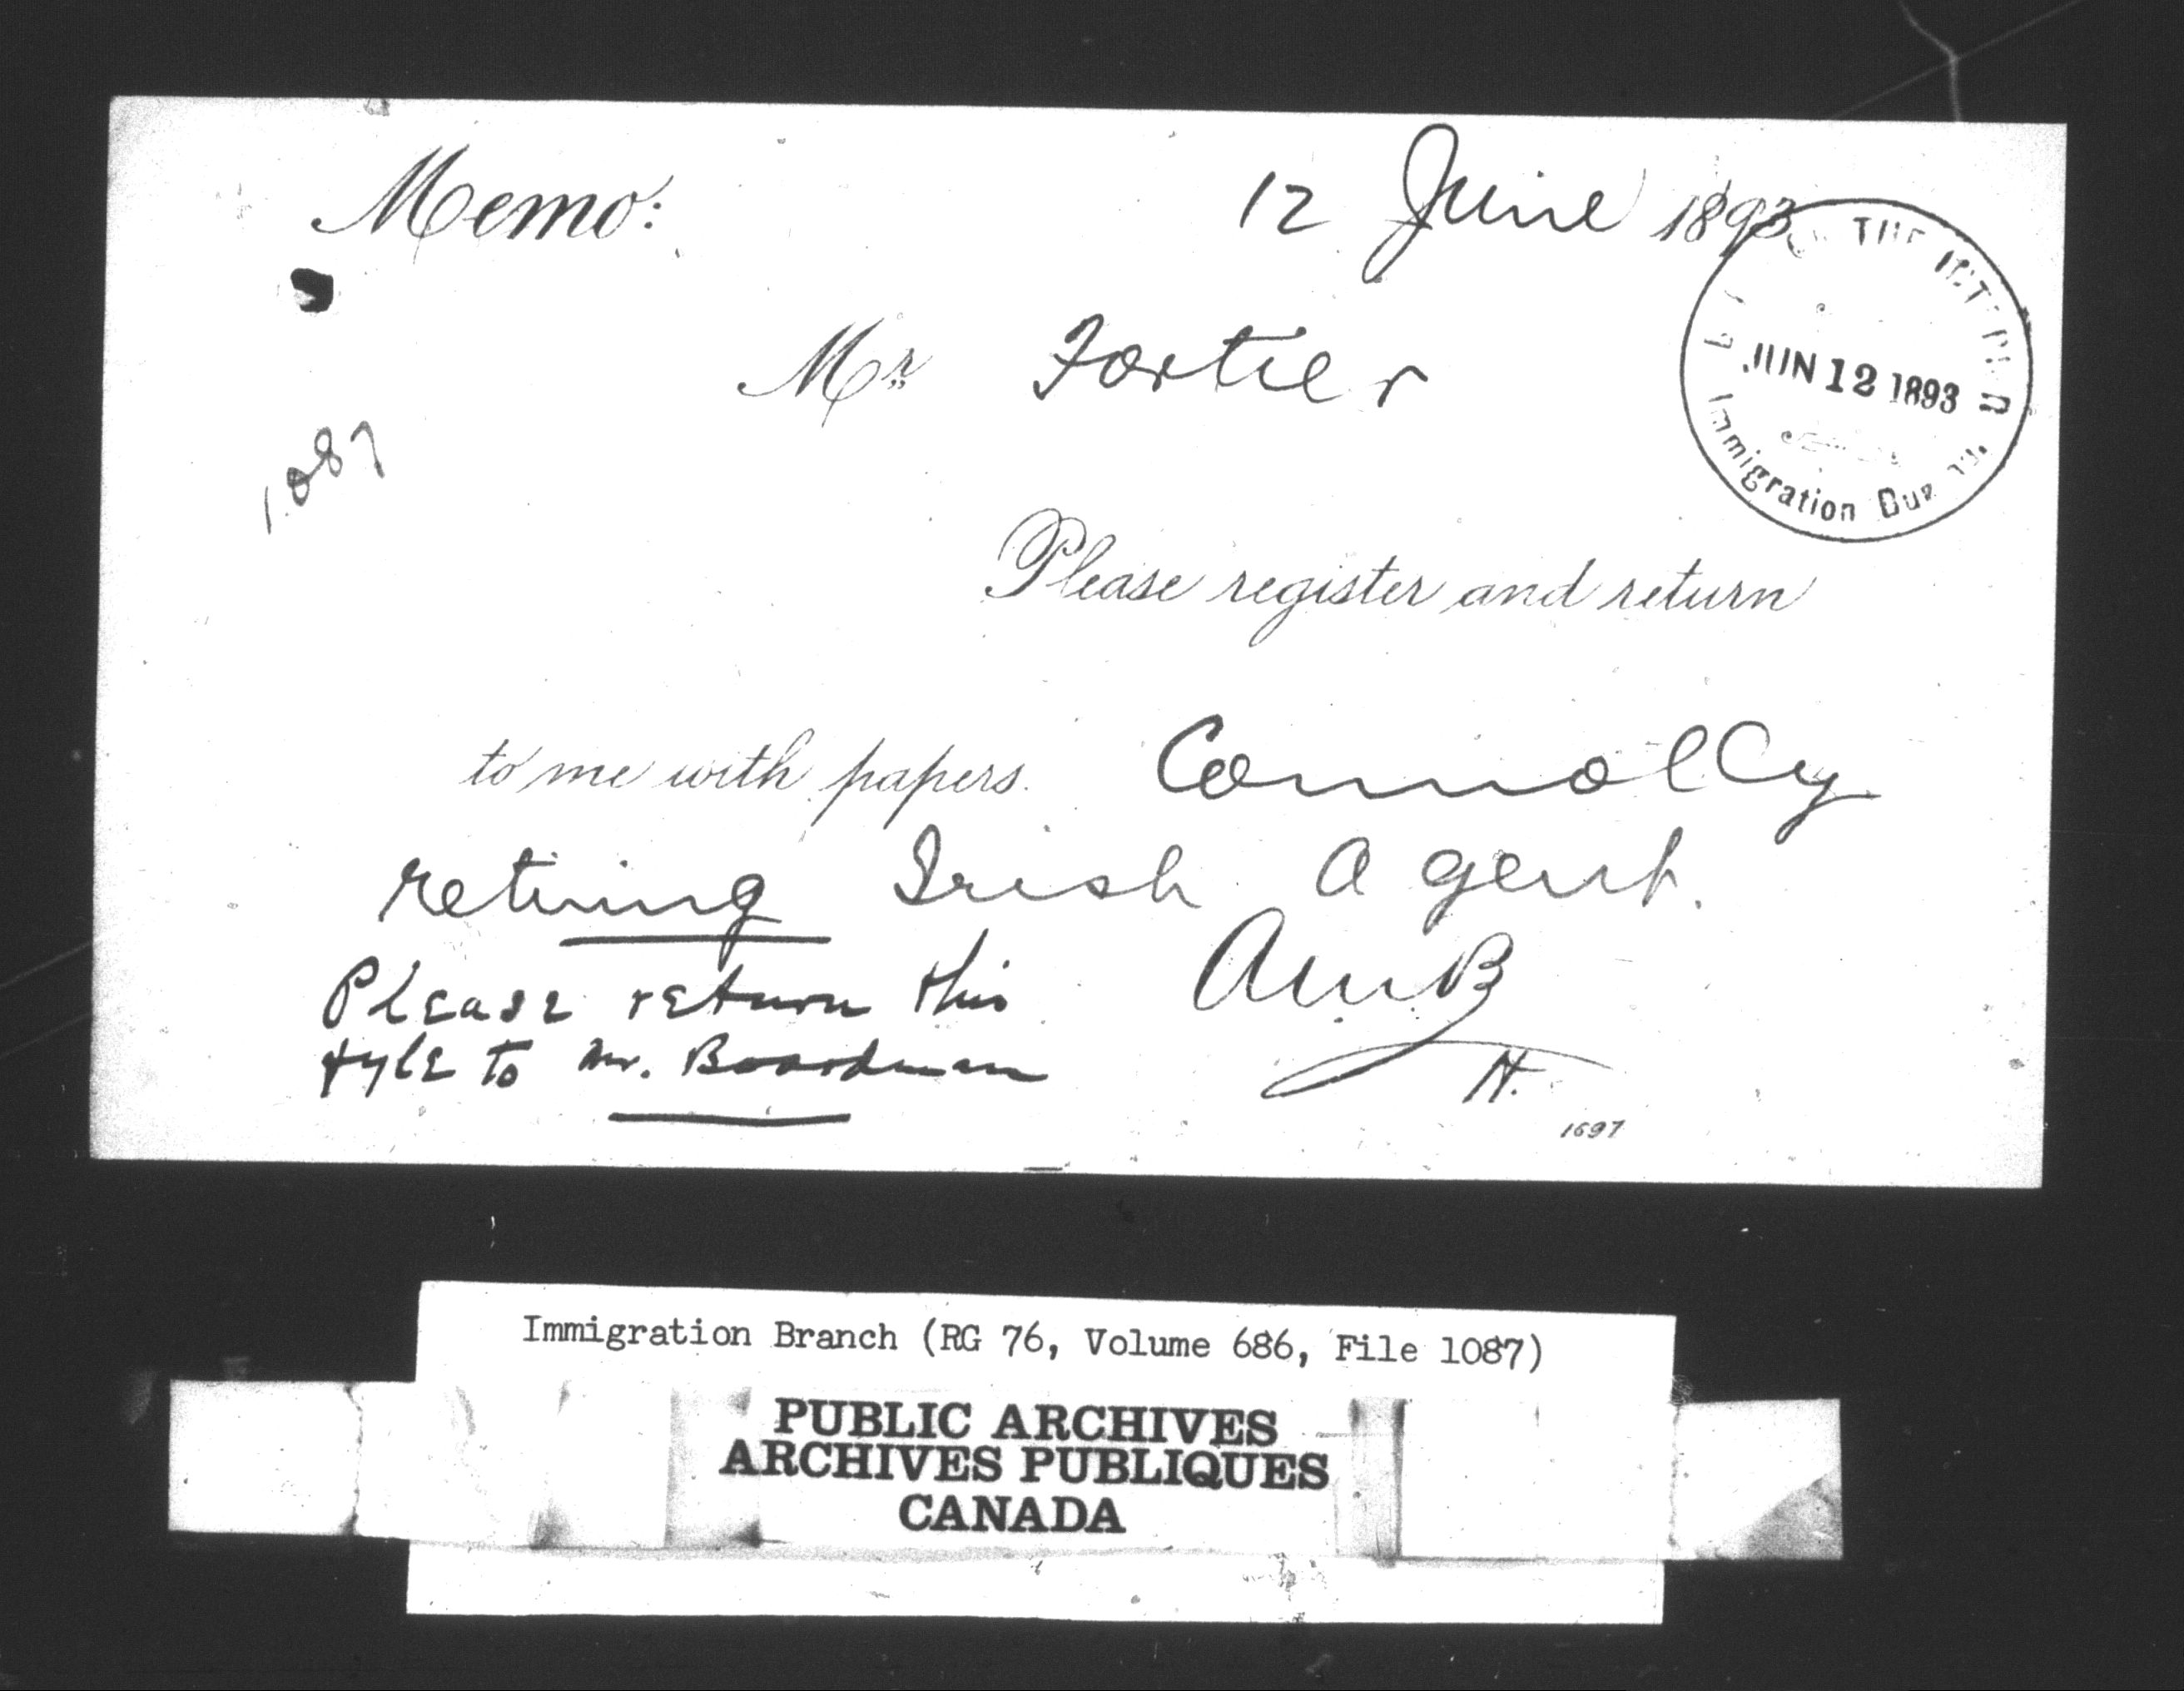 Memo: 12 June 1893
THE INTERIOR
JUN 12 1893
Immigration
Mr Fortier
1087
Please register and return
to me with papers. Connolly
retiring Irish Agent.
AMB
Please return this
fyle to Mr. Boardman
H.
1697
Immigration Branch (RG 76, Volume 686, File 1087)
PUBLIC ARCHIVES
ARCHIVES PUBLIQUES
CANADA